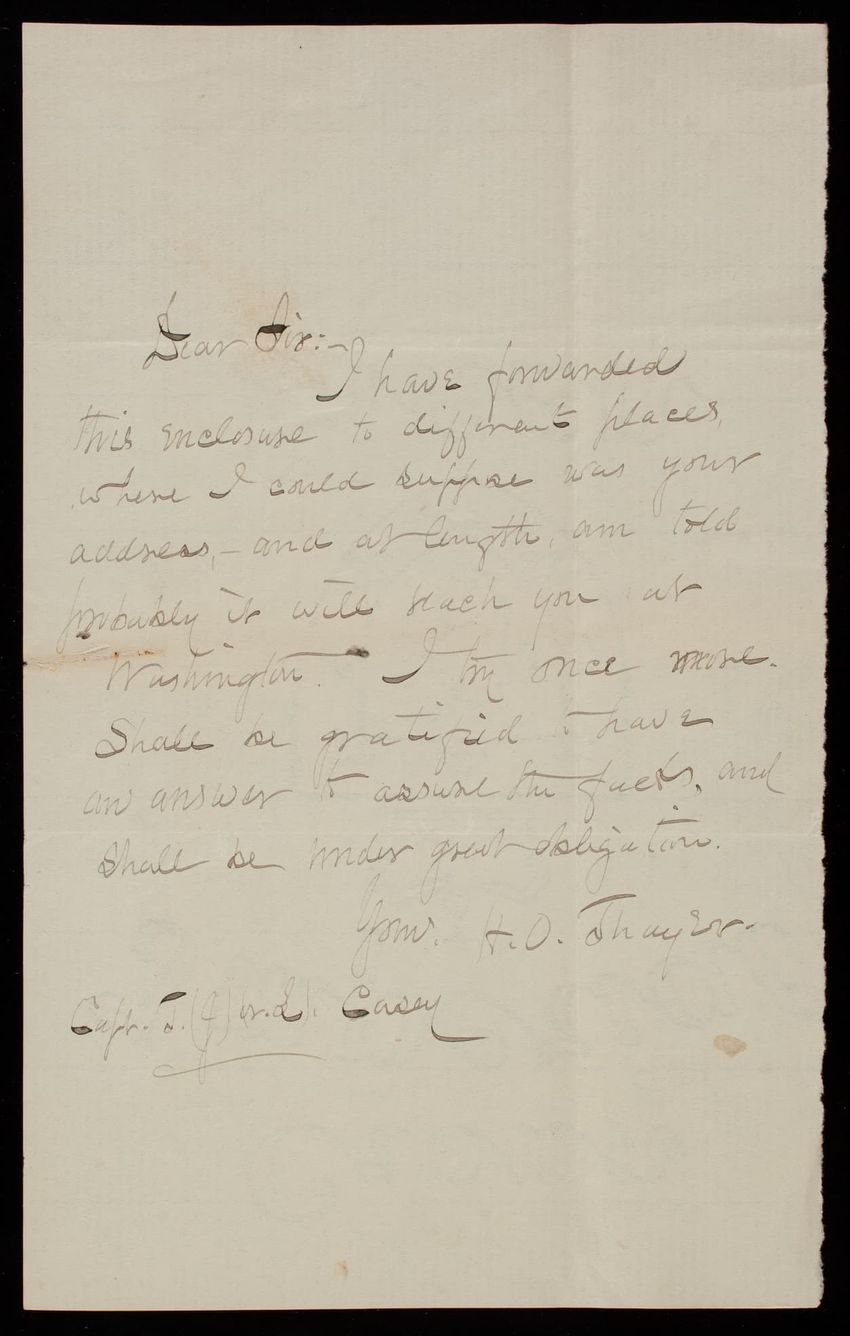 Dear Sir:–
I have forwarded
this enclosure to different places,
where I could suppose was your
address, – and at length, am told
probably it will reach you at
Washington. I try once more.
Shall be gratified to have
an answer to assure the facts, and
shall be under great obligation.
Yours. H. O. Thayer.
Capt. T. (J) (or. L). Casey